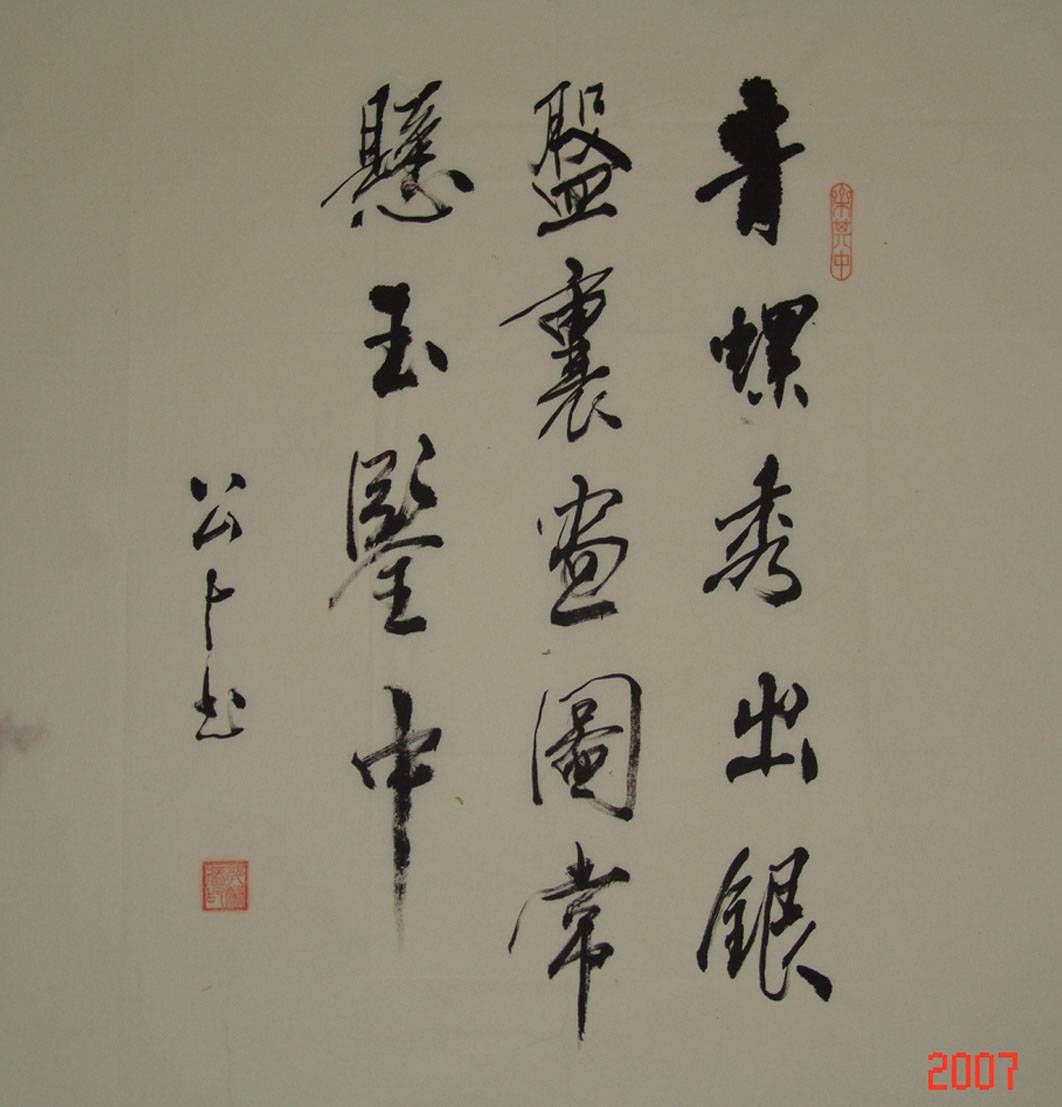 樂其中
青螺秀出銀
盤裏畫圖常
懸玉鑒中
公卜书
2007